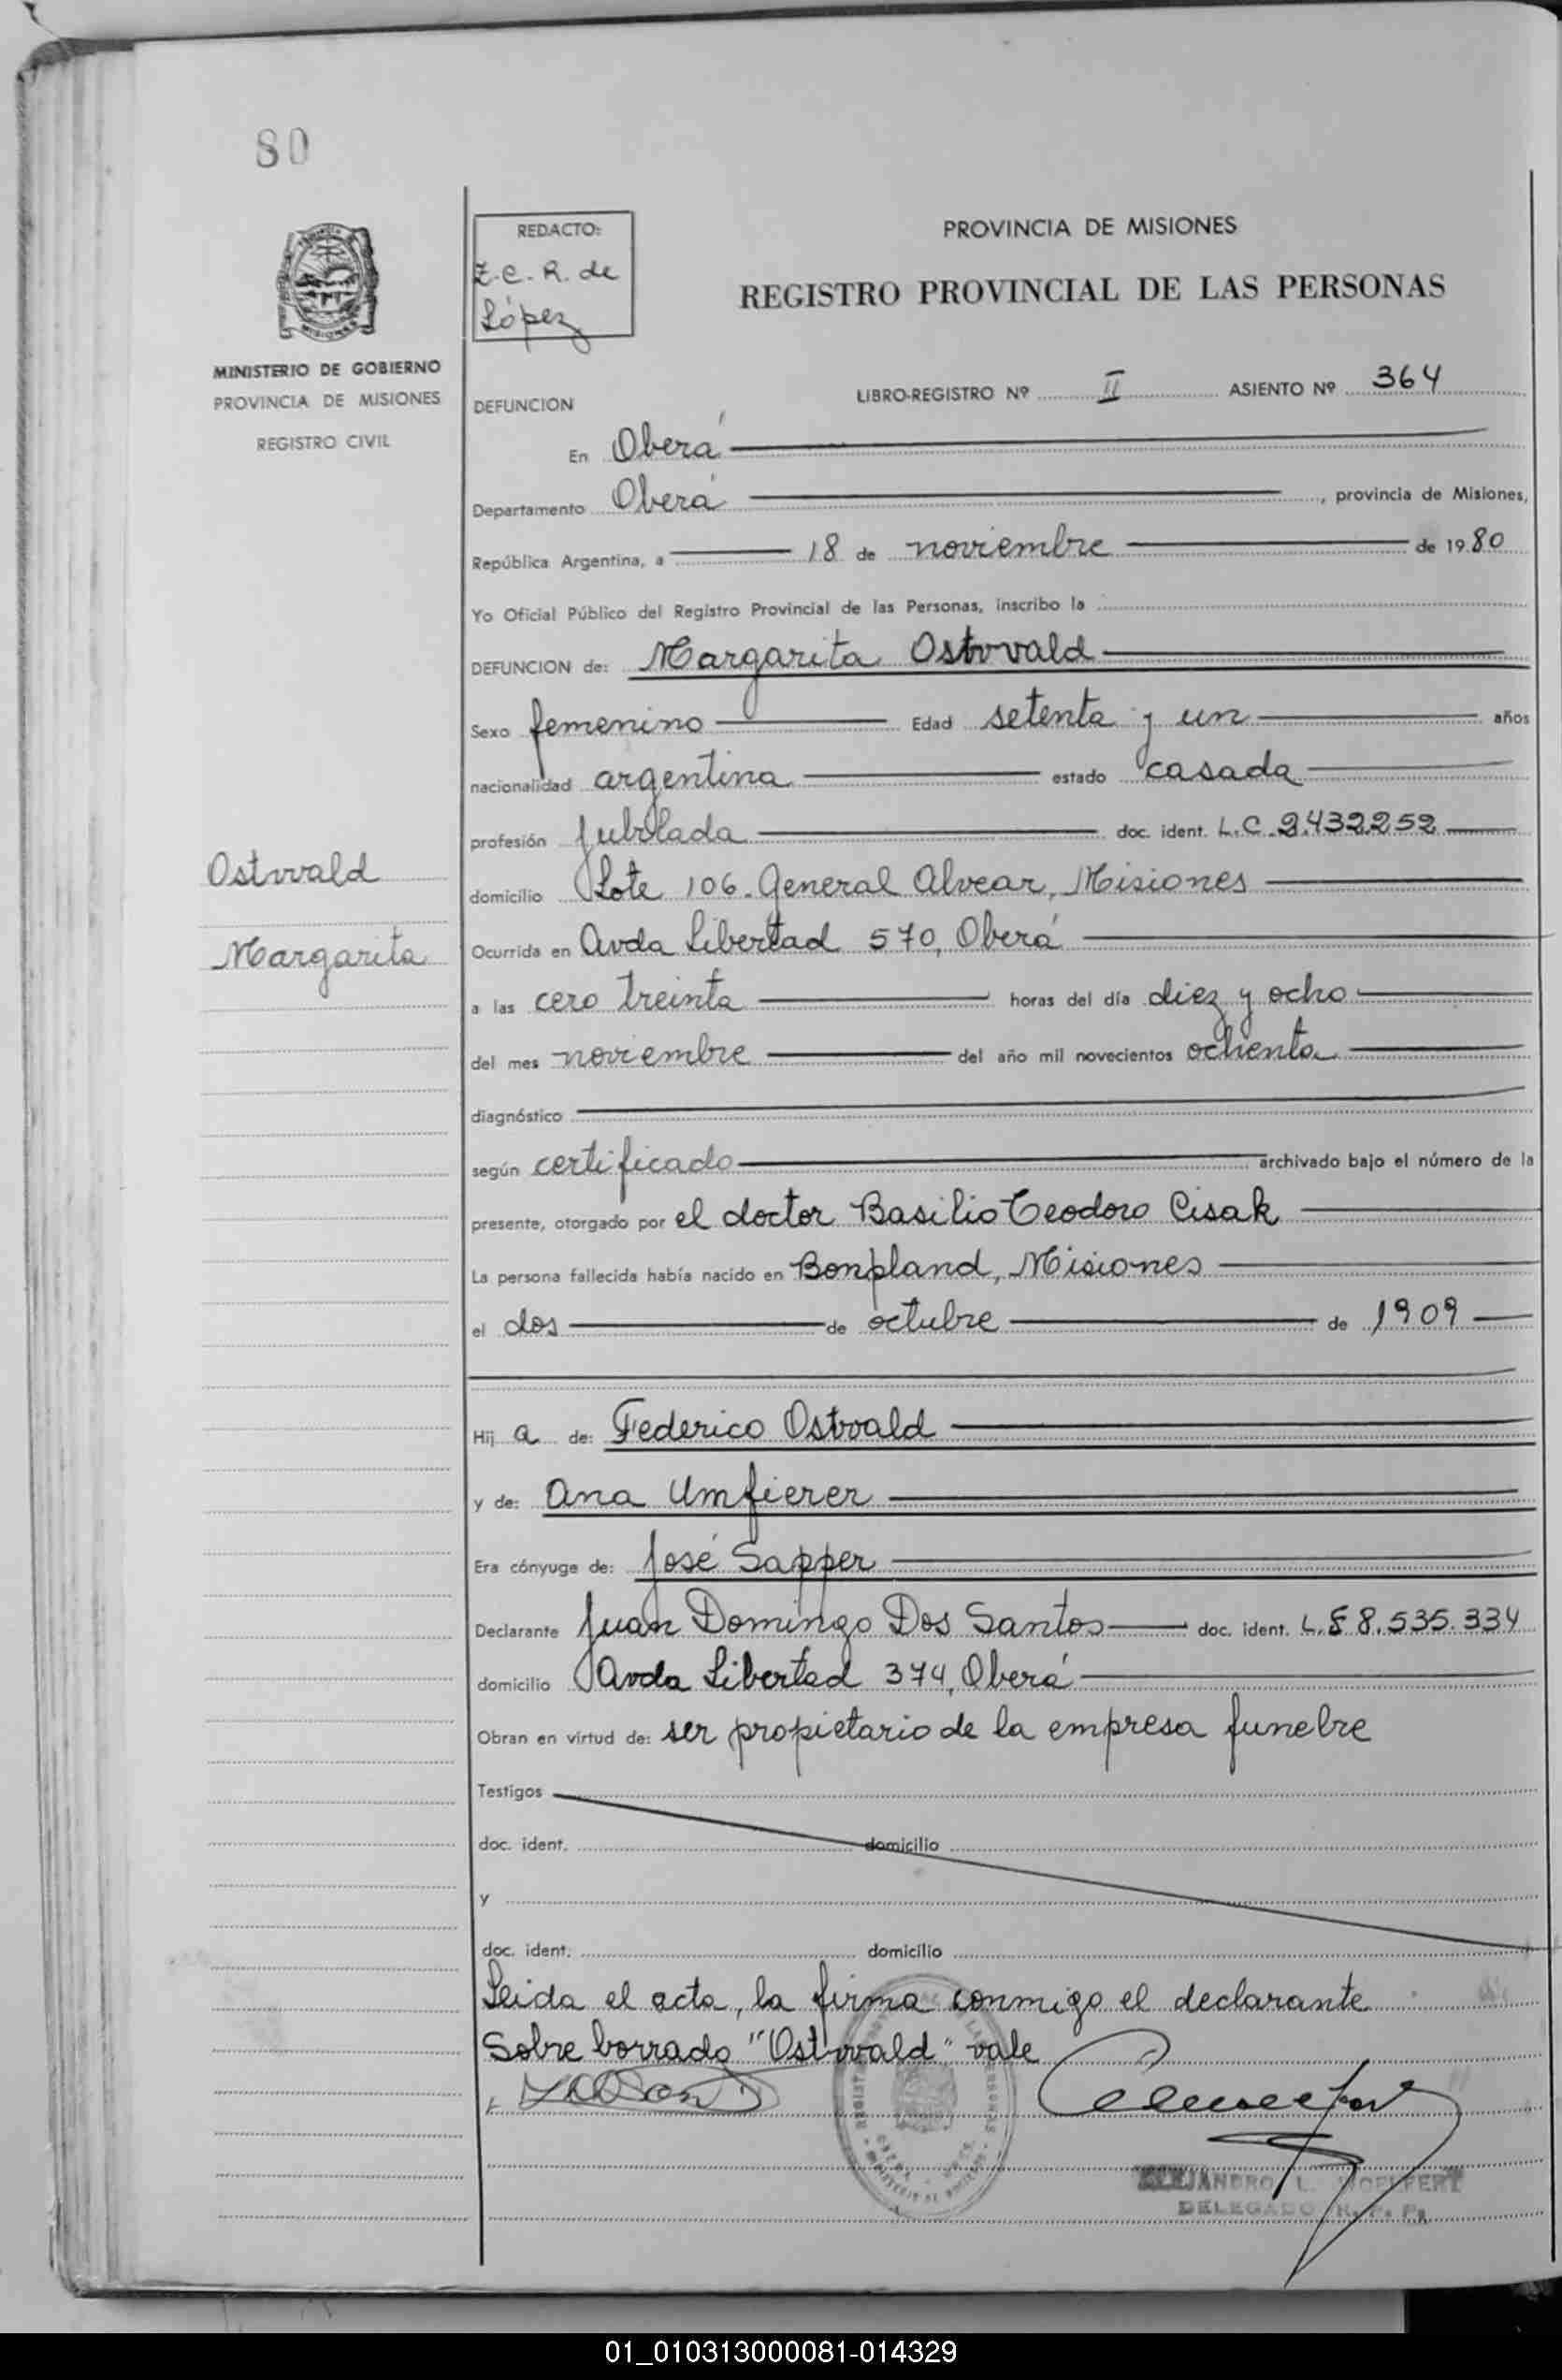 80
REDACTO:
Z.C.R. de
López
PROVINCIA DE MISIONES
REGISTRO PROVINCIAL DE LAS PERSONAS
MINISTERIO DE GOBIERNO
PROVINCIA DE MISIONES
REGISTRO CIVIL
DEFUNCION
LIBRO-REGISTRO Nº II ASIENTO Nº 364
En Oberá
Departamento Oberá, provincia de Misiones,
República Argentina, a 18 de noviembre de 1980
Yo Oficial Público del Registro Provincial de las Personas, inscribo la
DEFUNCION de: Margarita Ostwald
Sexo femenino Edad setenta y un años
nacionalidad argentina estado casada
profesión jubilada doc. ident. L.C. 2.432.252
Ostwald
domicilio Lote 106. General Alvear, Misiones
Margarita
Ocurrida en Avda Libertad 570, Oberá
a las cero treinta horas del día diez y ocho
del mes noviembre del año mil novecientos ochenta
diagnóstico
según certificado archivado bajo el número de la
presente, otorgado por el doctor Basilio Teodoro Cisak
La persona fallecida había nacido en Bonpland, Misiones
el dos de octubre de 1909
Hij a de: Federico Ostwald
y de: Ana Umfierer
Era cónyuge de: José Sapper
Declarante Juan Domingo Dos Santos doc. ident. L.E 8.535.334
domicilio Avda Libertad 374, Oberá
Obran en virtud de: ser propietario de la empresa funebre
Testigos
doc. ident. domicilio
y
doc. ident. domicilio
Leida el acta, la firma conmigo el declarante
Sobre borrado "Ostwald" vale
ALEJANDRO L. WOELFERT
DELEGADO R. P. P.
01_010313000081-014329